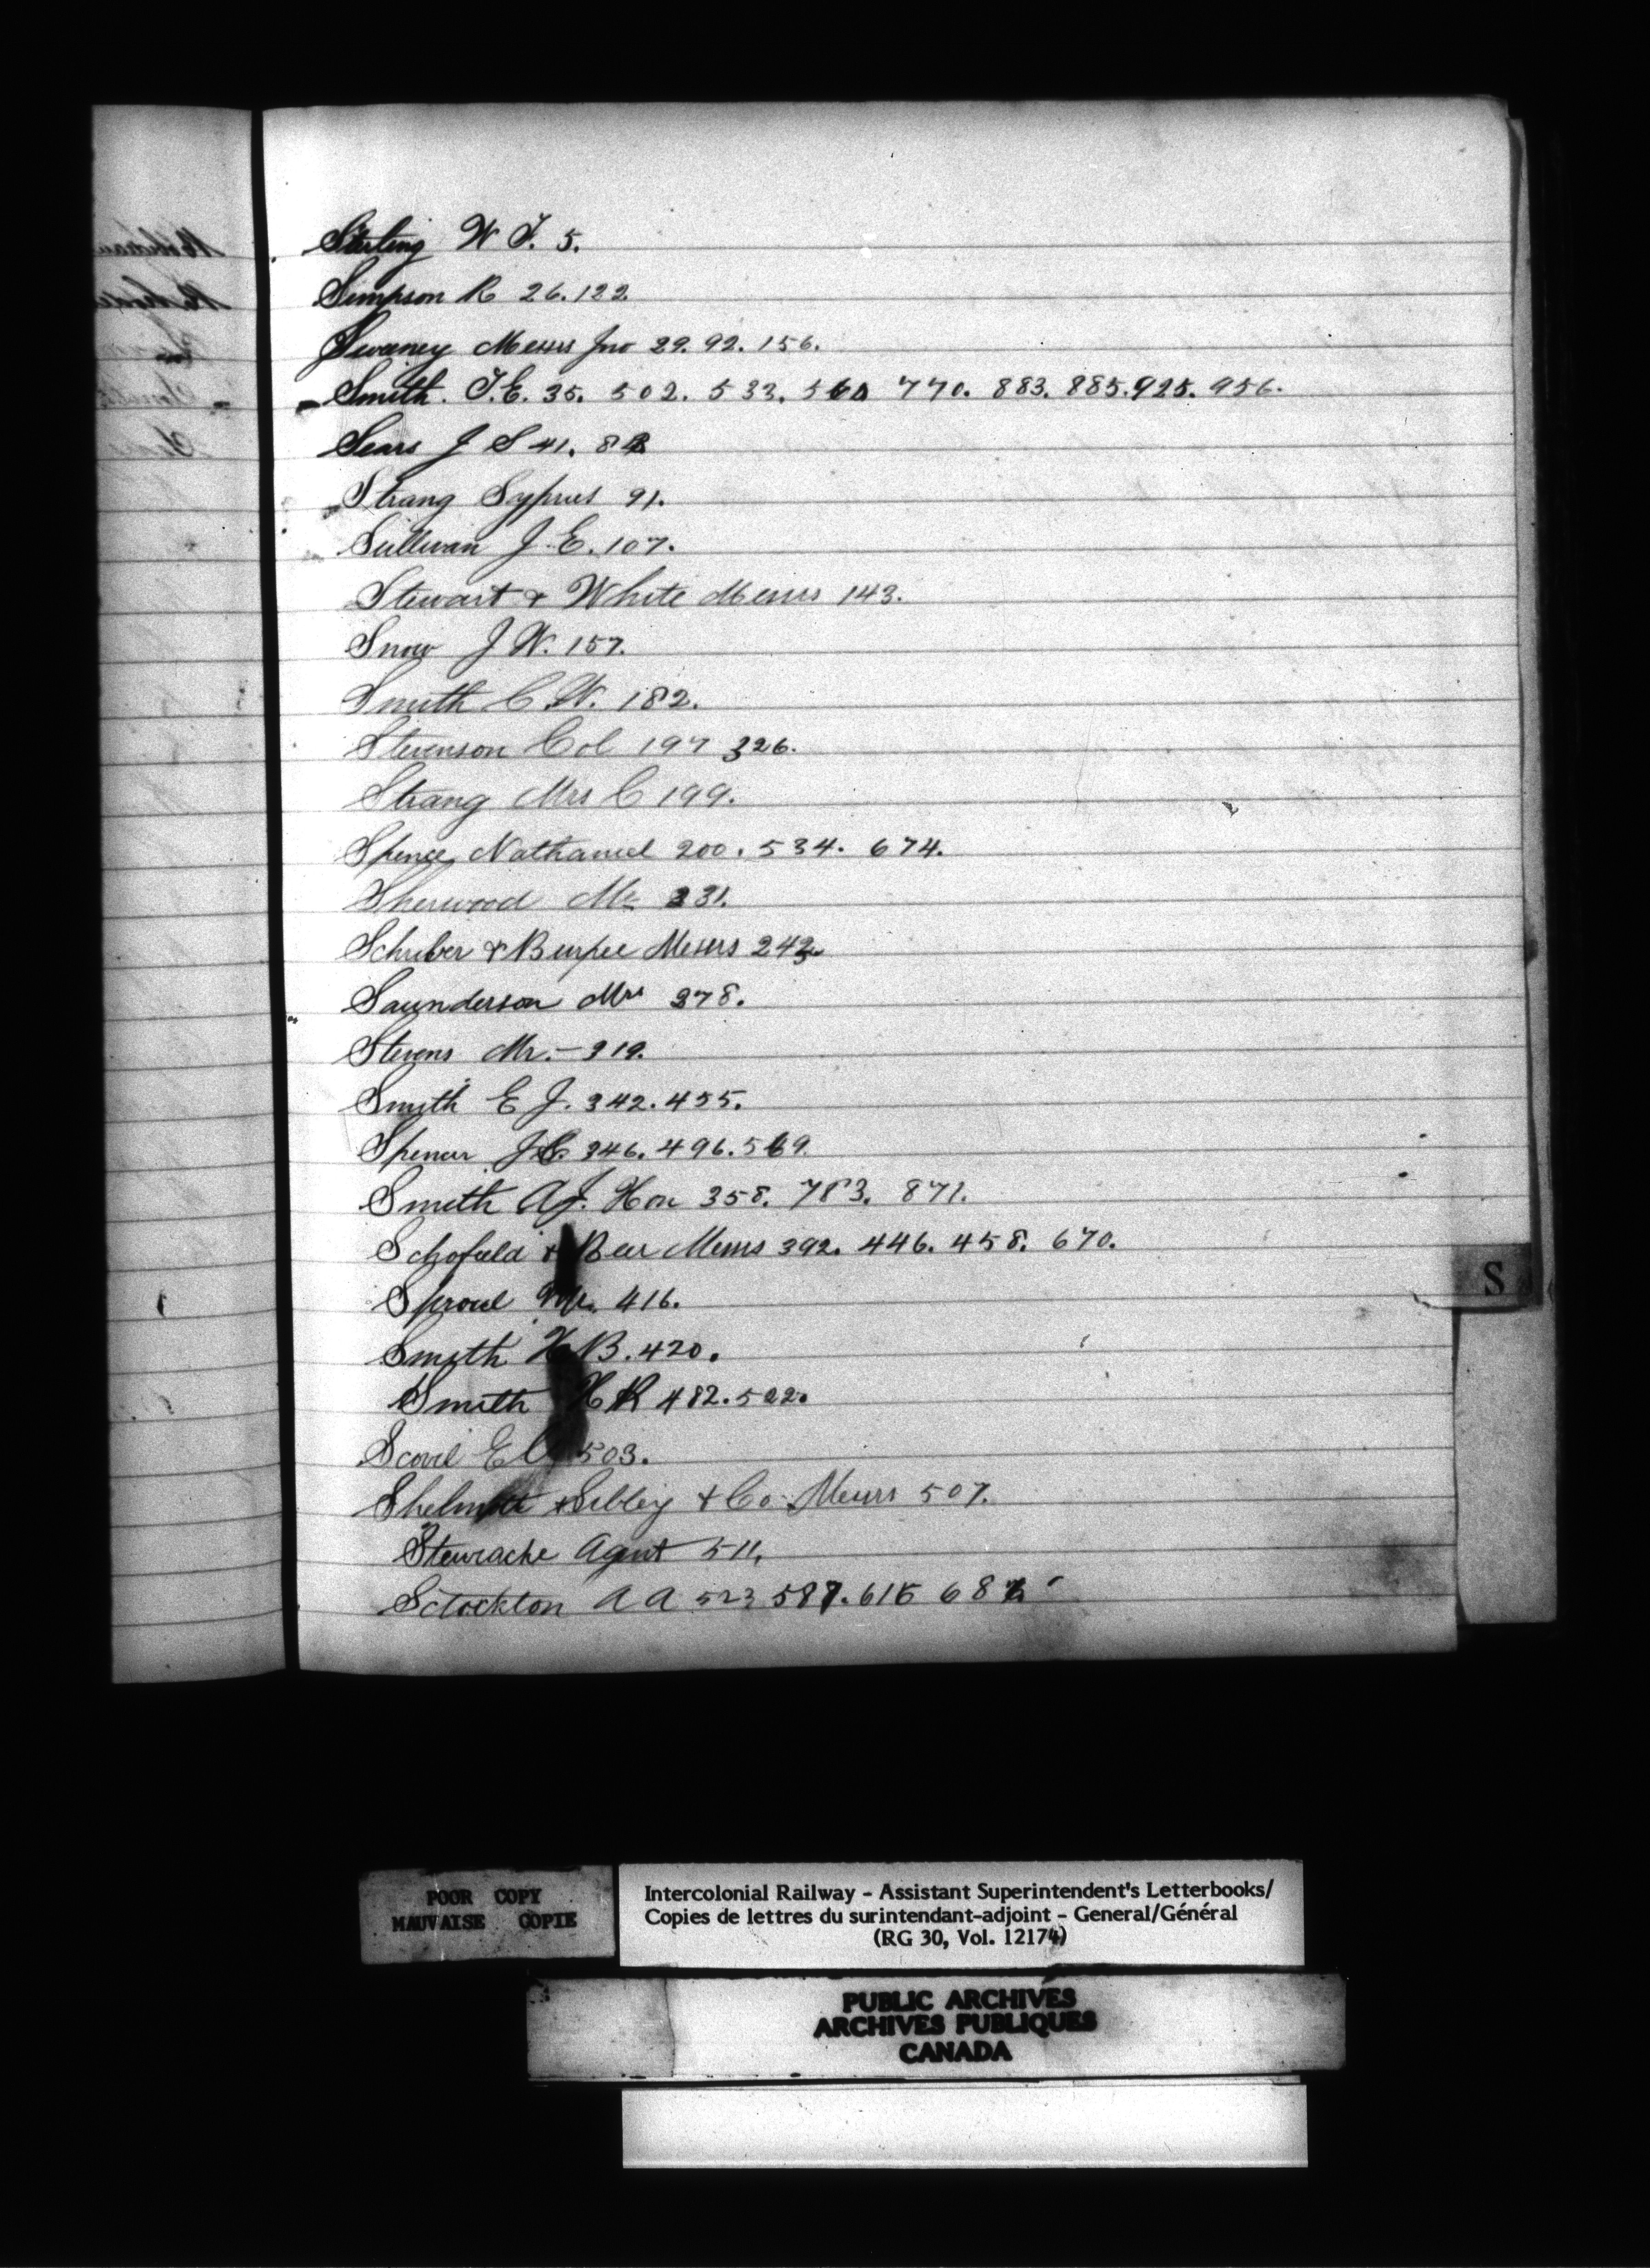 Sterling W T. 5.
Simpson R 26. 122
Sweeney Messrs Jno 29. 92. 156.
Smith. T. E. 35. 502. 533. 560 770. 883. 885. 925. 956.
Sears J S 41. 82
Strang Syprus 91.
Sullivan J. E. 107.
Stewart & White Messrs 143.
Snow J W. 157.
Smith C. W. 182.
Stevenson Col 197 326.
Strang Mrs C 199.
Spence Nathaniel 200. 534. 674.
Sherwood Mr 231.
Schriber & Burpee Messrs 242
Saunderson Mrs 278.
Stevens Mr. - 319.
Smith E J. 342. 455.
Spencer J. C. 346. 496. 569.
Smith A J. Hon 358. 783. 871.
Schofield & Beer Messrs 392. 446. 458. 670.
Sproul Mr. 416.
Smith H B. 420.
Smith H R 482. 522.
Scovil E 503.
& Sibley & Co Messrs 507.
Agent 511.
Sctockton A A 523 587. 615 68
S
POOR COPY
MAUVAISE COPIE
Intercolonial Railway - Assistant Superintendent's Letterbooks/
Copies de lettres du surintendant-adjoint - General/Général
(RG 30, Vol. 12174)
PUBLIC ARCHIVES
ARCHIVES PUBLIQUES
CANADA